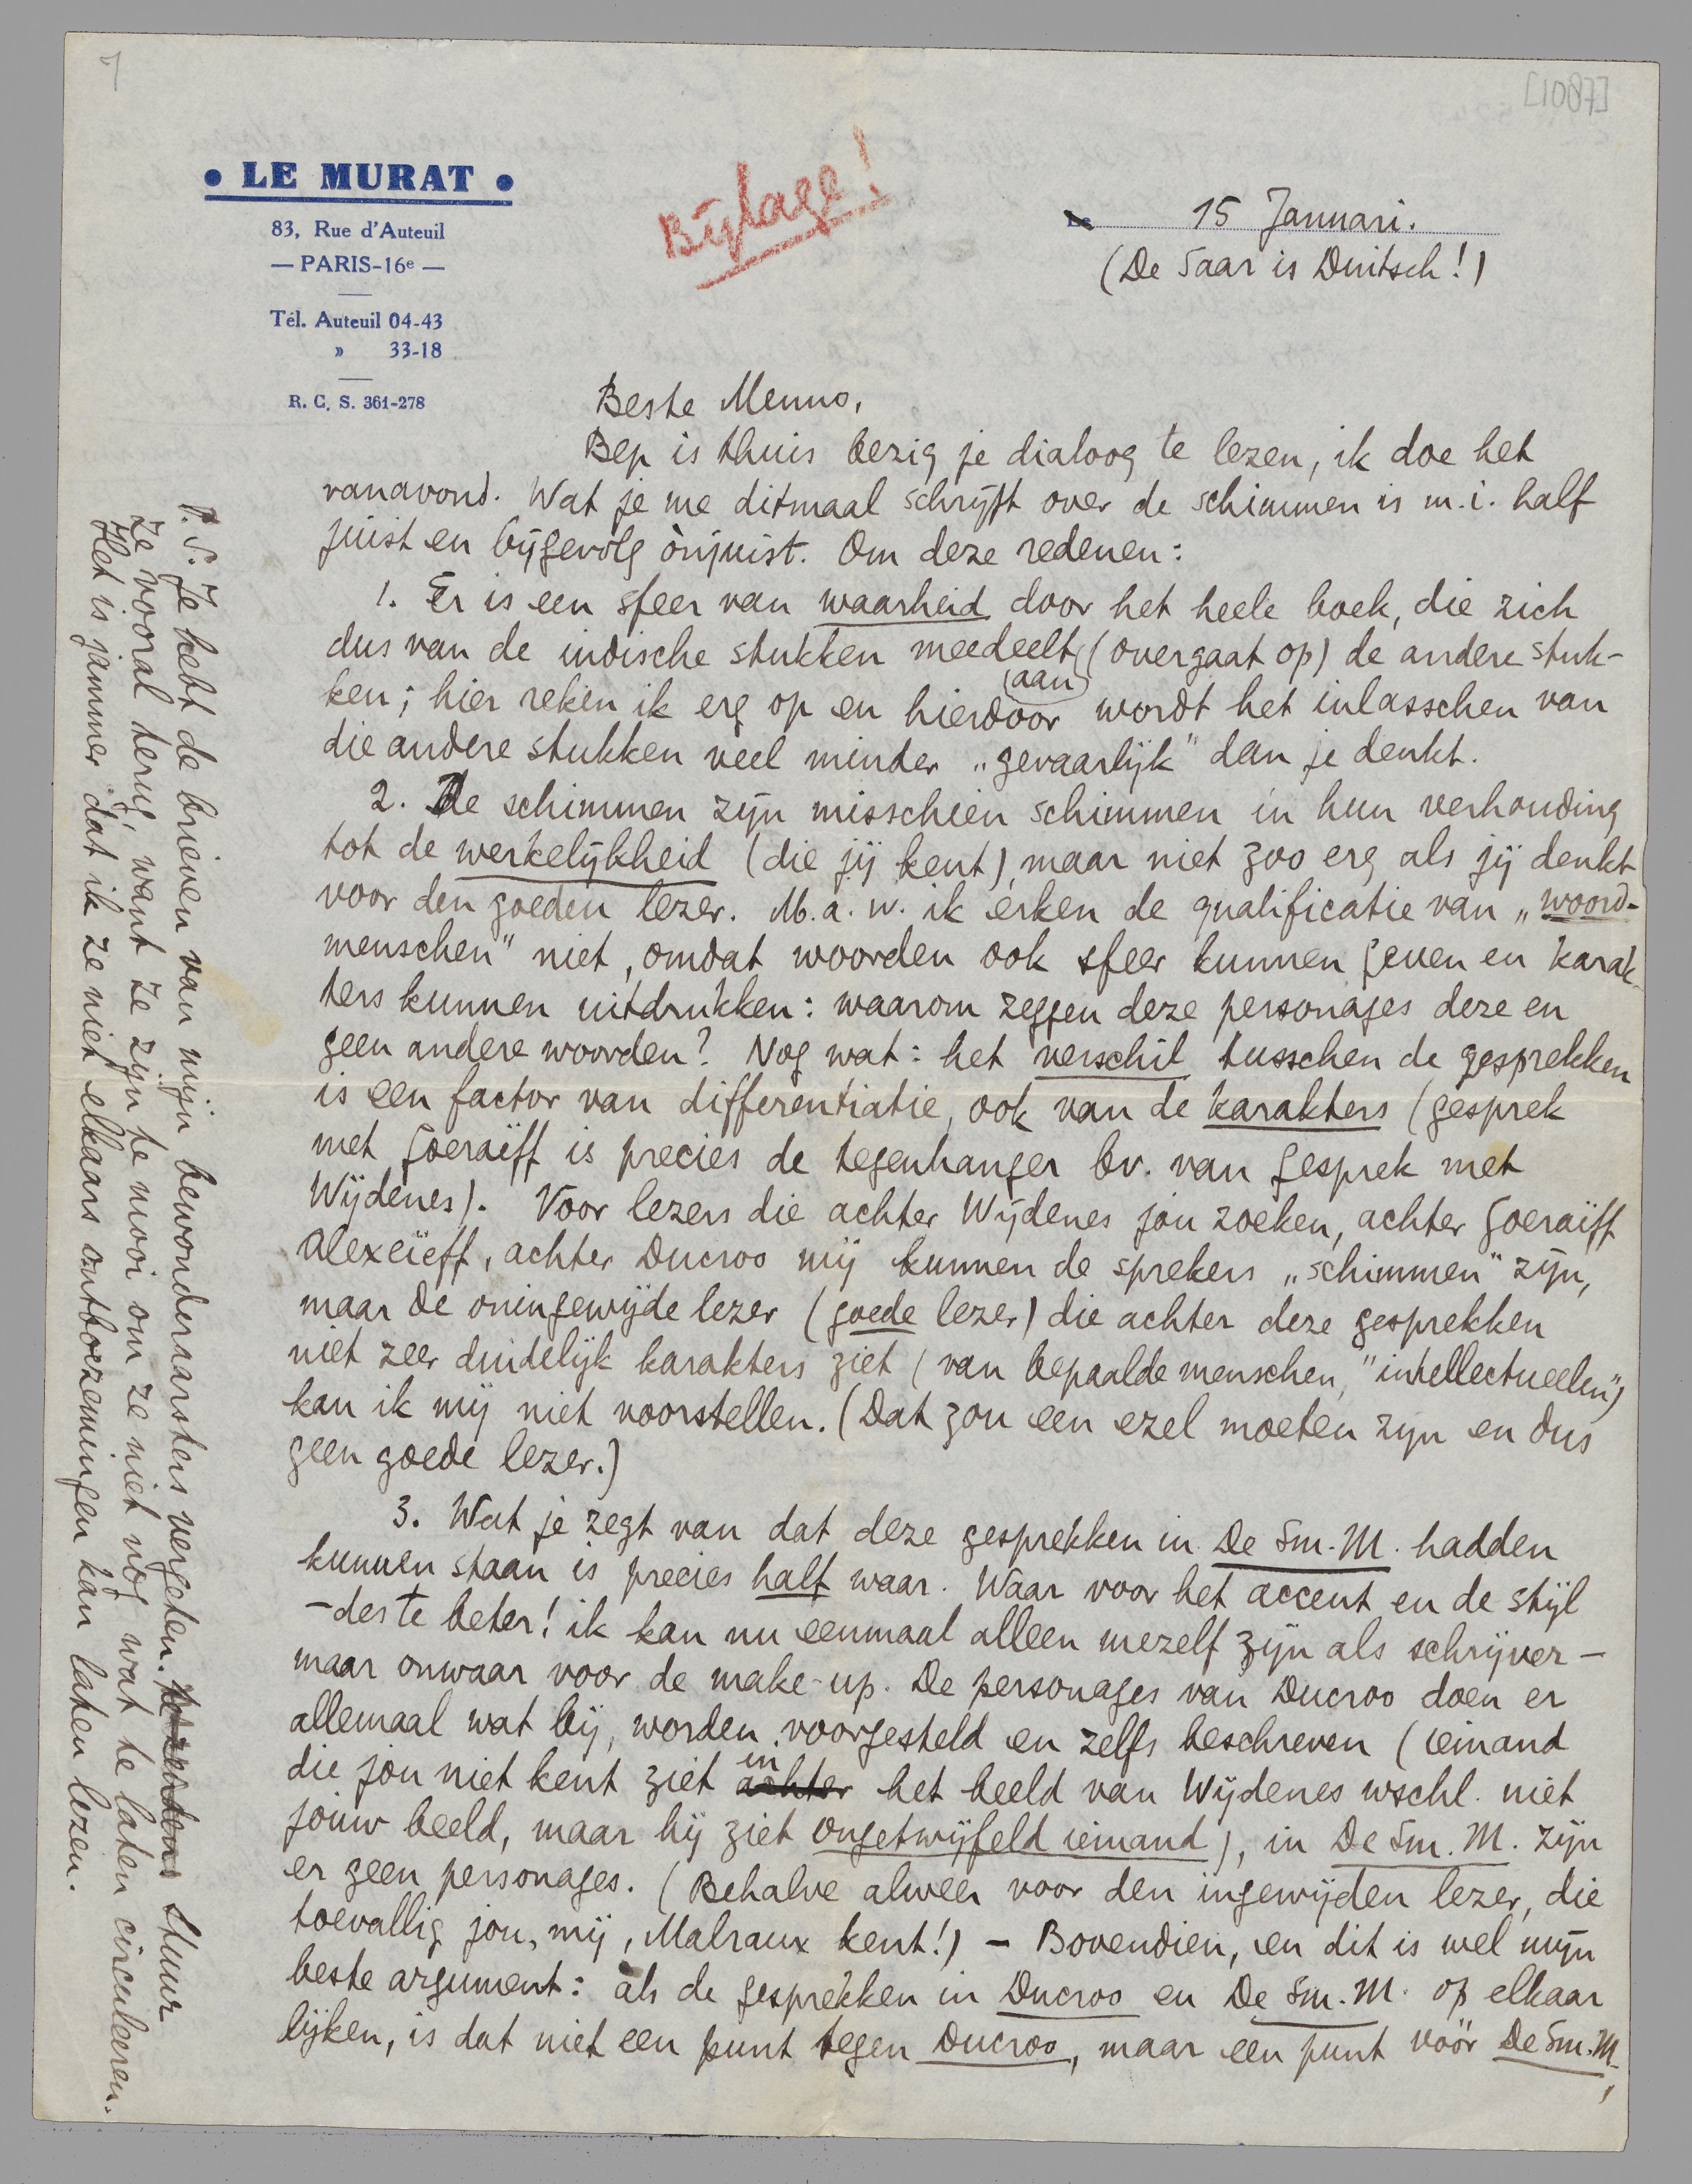 7
[1087]
• LE MURAT •
83, Rue d'Auteuil
— PARIS-16e —
Tél. Auteuil 04-43
» 33-18
R. C. S. 361-278
Bijlage!
Le 15 Januari.
(De Saar is Duitsch!)
Beste Menno,
Bep is thuis bezig je dialoog te lezen, ik doe het
vanavond. Wat je me ditmaal schrijft over de schimmen is m.i. half
juist en bijgevolg ònjuist. Om deze redenen:
1. Er is een sfeer van waarheid door het heele boek, die zich
dus van de indische stukken meedeelt (overgaat op) de andere stuk-
(aan)
ken; hier reken ik erg op en hierdoor wordt het inlasschen van
die andere stukken veel minder „gevaarlijk" dan je denkt.
2. De schimmen zijn misschien schimmen in hun verhouding
tot de werkelijkheid (die jij kent), maar niet zoo erg als jij denkt
voor den goeden lezer. M.a.w. ik erken de qualificatie van „woord-
menschen" niet, omdat woorden ook sfeer kunnen geven en karak-
ters kunnen uitdrukken: waarom zeggen deze personages deze en
geen andere woorden? Nog wat: het verschil tusschen de gesprekken
is een factor van differentiatie, ook van de karakters (gesprek
met Goeraëff is precies de tegenhanger bv. van gesprek met
Wijdenes). Voor lezers die achter Wijdenes jou zoeken, achter Goeraëff
Alexeïeff, achter Ducroo mij kunnen de sprekers „schimmen" zijn,
maar de oningewijde lezer (goede lezer) die achter deze gesprekken
niet zeer duidelijk karakters ziet (van bepaalde menschen, "intellectueelen")
kan ik mij niet voorstellen. (Dat zou een ezel moeten zijn en dus
geen goede lezer.)
3. Wat je zegt van dat deze gesprekken in De Sm. M. hadden
kunnen staan is precies half waar. Waar voor het accent en de stijl
- des te beter! ik kan nu eenmaal alleen mezelf zijn als schrijver -
maar onwaar voor de make-up. De personages van Ducroo doen er
allemaal wat bij, worden voorgesteld en zelfs beschreven (iemand
die jou niet kent ziet achter in het beeld van Wijdenes wschl. niet
jouw beeld, maar hij ziet ongetwijfeld iemand), in De Sm. M. zijn
er geen personages. (Behalve alweer voor den ingewijden lezer, die
toevallig jou, mij, Malraux kent!) - Bovendien, en dit is wel mijn
beste argument: àls de gesprekken in Ducroo en De Sm. M. op elkaar
lijken, is dat niet een punt tegen Ducroo, maar een punt vóór De Sm. M.,
P.S. Je hebt de brieven van mijn bewonderaarsters vergeten. Stuur
ze vooral terug, want ze zijn te mooi om ze niet nog wat te laten circuleeren.
Het is jammer dat ik ze niet elkaars ontboezemingen kan laten lezen.